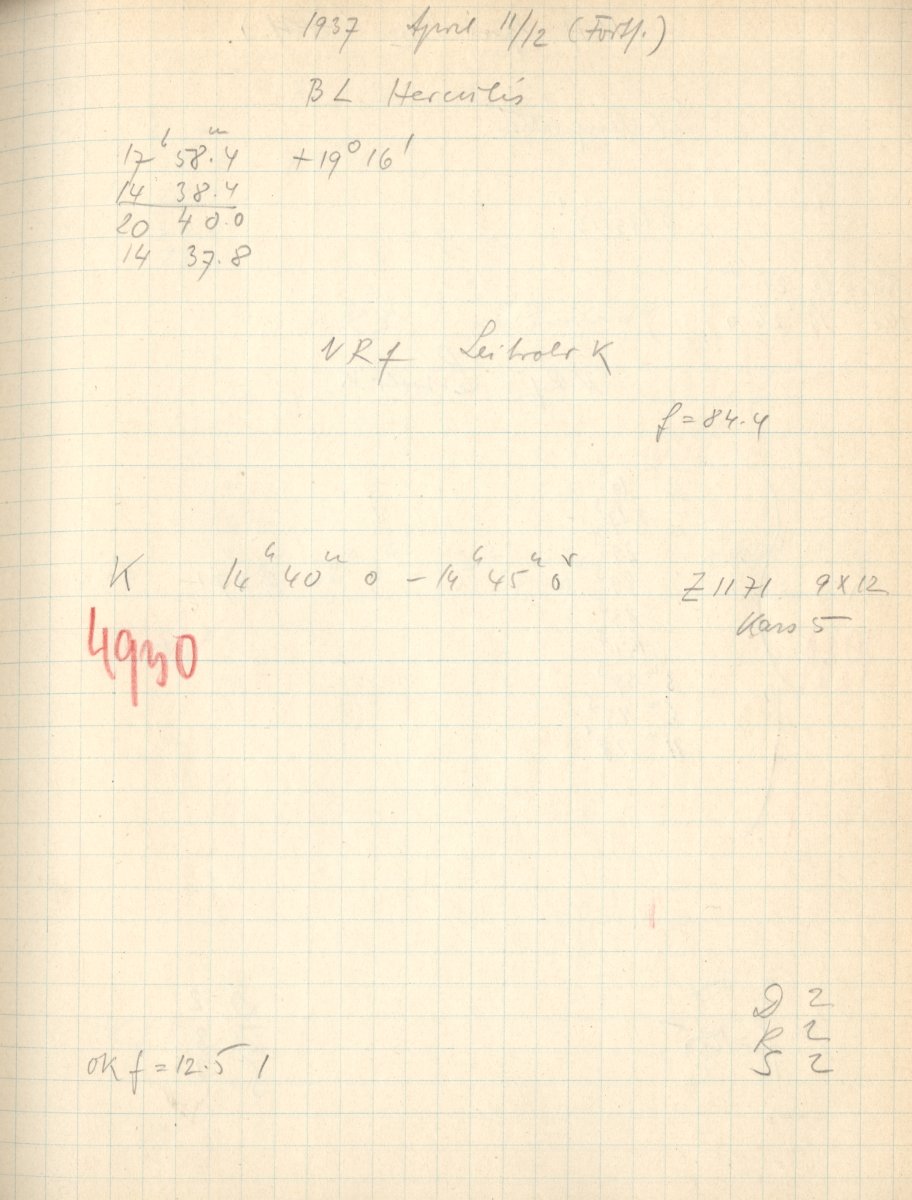 1937 April 11/12 (Forts.)
BL Herculis
17h 58m.4 +19° 16'
14 38.4
20 40.0
14 37.8
VRf Leitrohr K
f = 84.4
K 14h 40m 0 - 14h 45m 0s Z 1171 9x12
Kass 5
4930
D 2
R 2
S 2
OK f = 12.5 /